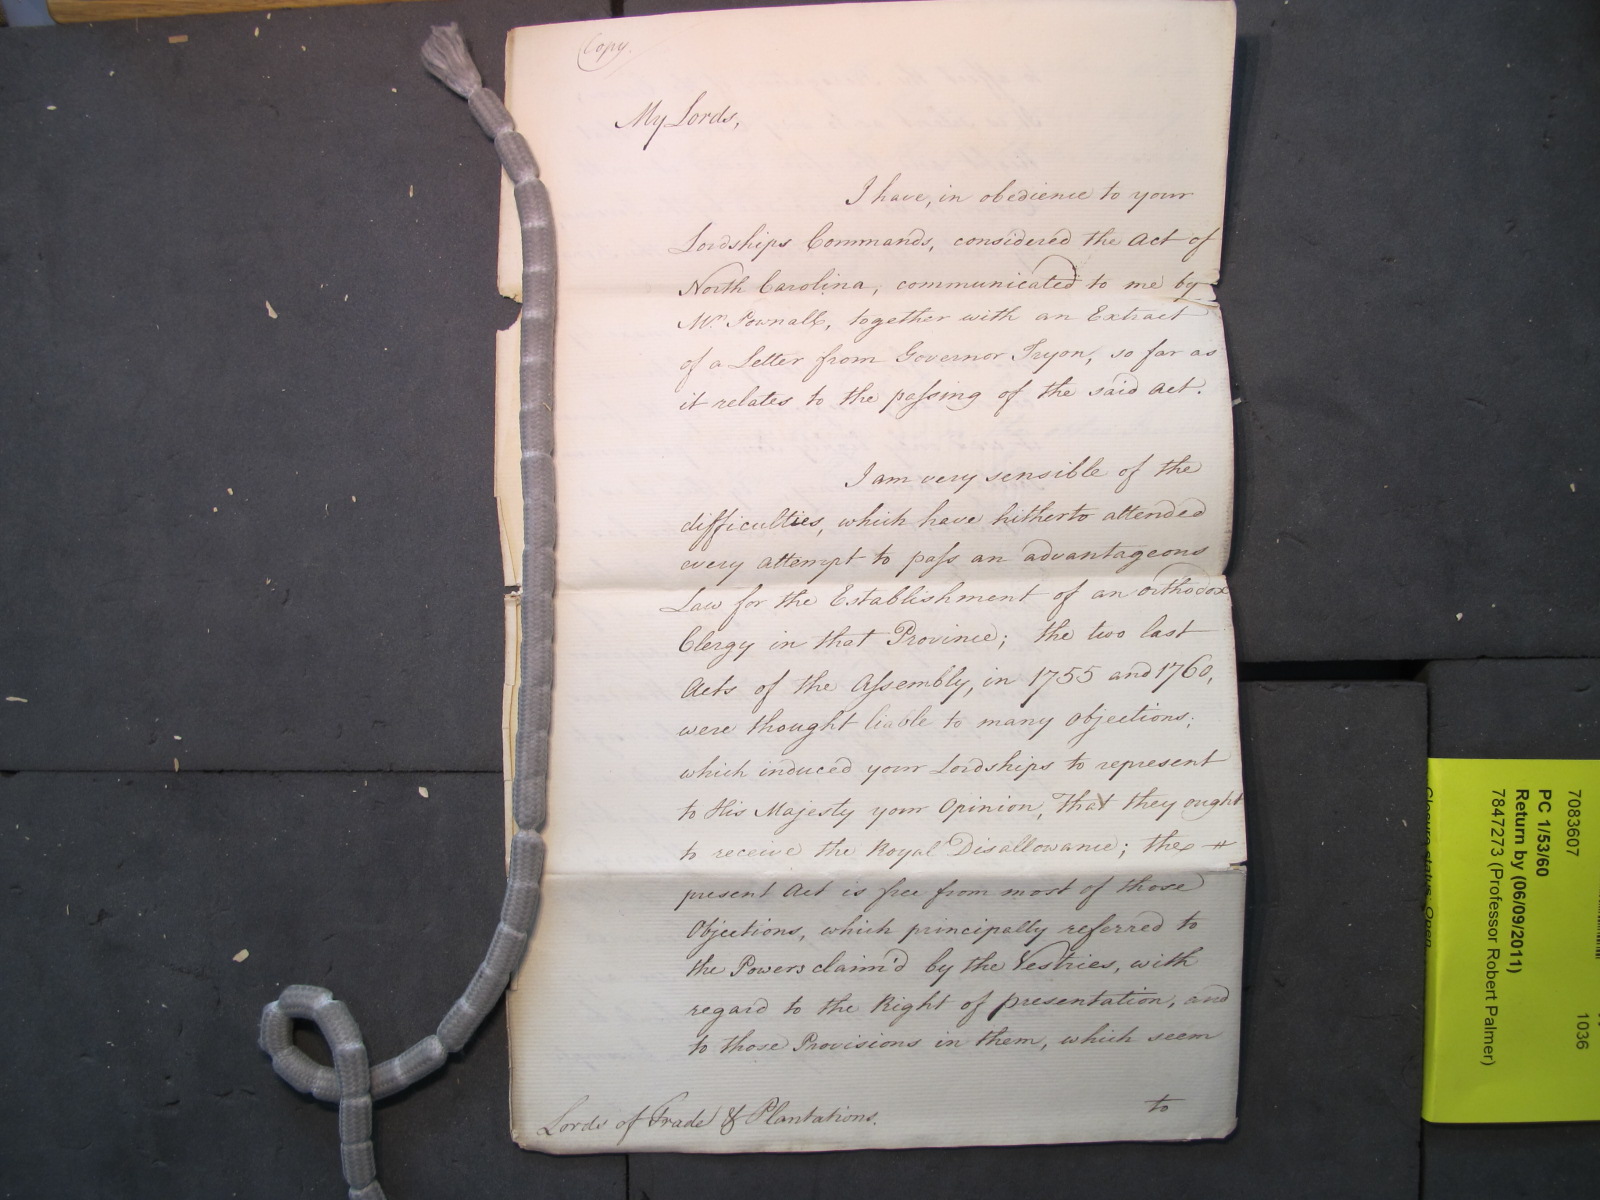 Copy.
My Lords,
I have, in obedience to your
Lordships Commands, considered the Act of
North Carolina, communicated to me by
Mr. Pownall, together with an Extract
of a Letter from Governor Tryon, so far as
it relates to the passing of the said Act.
I am very sensible of the
difficulties, which have hitherto attended
every attempt to pass an advantageous
Law for the Establishment of an orthodox
Clergy in that Province; the two last
Acts of the Assembly, in 1755 and 1760,
were thought liable to many Objections;
which induced your Lordships to represent
to His Majesty your Opinion, That they ought
to receive the Royal Disallowance; the
present Act is free from most of those
Objections, which principally referred to
the Powers claim'd by the Vestries, with
regard to the Right of presentation, and
to those Provisions in them, which seem
to
Lords of Trade & Plantations.
7083607
PC 1/53/60
Return by (06/09/2011)
7847273 (Professor Robert Palmer)
1036
Closure status: Open